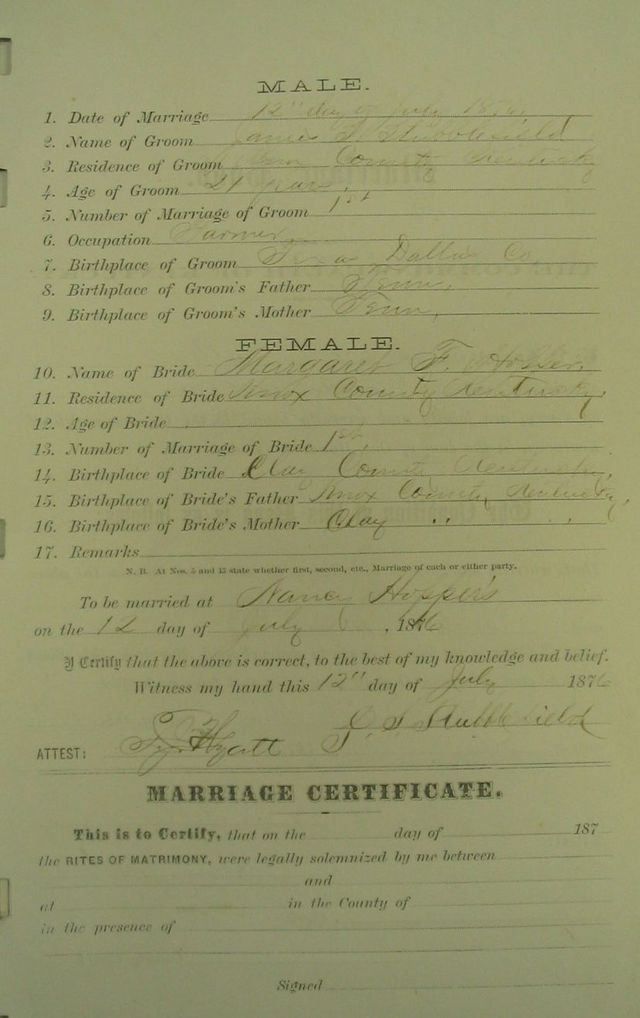 MALE.
1. Date of Marriage 12" day of July 1876
2. Name of Groom James Stubblefield
3. Residence of Groom Knox County Kentucky
4. Age of Groom 21 years
5. Number of Marriage of Groom 1st
6. Occupation Farmer
7. Birthplace of Groom Dallas Co
8. Birthplace of Groom's Father Tenn.
9. Birthplace of Groom's Mother Tenn.
FEMALE.
10. Name of Bride Margaret F. Hopper
11. Residence of Bride Knox County Kentucky,
12. Age of Bride
13. Number of Marriage of Bride 1st.
14. Birthplace of Bride Clay County Kentucky,
15. Birthplace of Bride's Father Knox County, Kentucky,
16. Birthplace of Bride's Mother Clay " "
17. Remarks
N. B. At Nos. 5 and 13 state whether first, second, etc., Marriage of each or either party.
To be married at Nancy Hopper's
on the 12 day of July, 1876
I Certify that the above is correct, to the best of my knowledge and belief.
Witness my hand this 12" day of July 1876
J S Stubblefield
ATTEST: Hyatt
MARRIAGE CERTIFICATE.
This is to Certify, that on the day of 187
the RITES OF MATRIMONY, were legally solemnized by me between
and
at in the County of
in the presence of
Signed